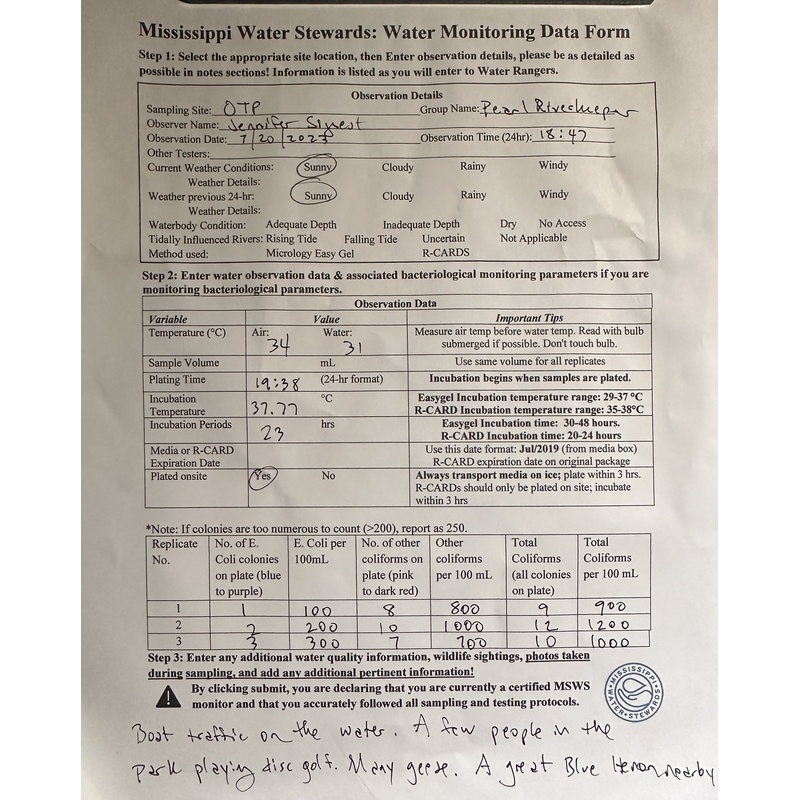 Mississippi Water Stewards: Water Monitoring Data Form
Step 1: Select the appropriate site location, then Enter observation details, please be as detailed as
possible in notes sections! Information is listed as you will enter to Water Rangers.
Observation Details
Sampling Site: OTP Group Name: Pearl Riverkeeper
Observer Name: Jennifer
Observation Date: 7/20/2023 Observation Time (24hr): 18:47
Other Testers:
Current Weather Conditions: Sunny Cloudy Rainy Windy
Weather Details:
Weather previous 24-hr: Sunny Cloudy Rainy Windy
Weather Details:
Waterbody Condition: Adequate Depth Inadequate Depth Dry No Access
Tidally Influenced Rivers: Rising Tide Falling Tide Uncertain Not Applicable
Method used: Micrology Easy Gel R-CARDS
Step 2: Enter water observation data & associated bacteriological monitoring parameters if you are
monitoring bacteriological parameters.
Observation Data
Variable Value Important Tips
Temperature (°C) Air: Water: Measure air temp before water temp. Read with bulb
34 31 submerged if possible. Don't touch bulb.
Sample Volume mL Use same volume for all replicates
Plating Time 19:38 (24-hr format) Incubation begins when samples are plated.
Incubation °C Easygel Incubation temperature range: 29-37 °C
Temperature 37.77 R-CARD Incubation temperature range: 35-38°C
Incubation Periods hrs Easygel Incubation time: 30-48 hours.
23 R-CARD Incubation time: 20-24 hours
Media or R-CARD Use this date format: Jul/2019 (from media box)
Expiration Date R-CARD expiration date on original package
Plated onsite Yes No Always transport media on ice; plate within 3 hrs.
R-CARDs should only be plated on site; incubate
within 3 hrs
*Note: If colonies are too numerous to count (>200), report as 250.
Replicate No. of E. E. Coli per No. of other Other Total Total
No. Coli colonies 100mL coliforms on coliforms Coliforms Coliforms
on plate (blue plate (pink per 100 mL (all colonies per 100 mL
to purple) to dark red) on plate)
1 1 100 8 800 9 900
2 2 200 10 1000 12 1200
3 3 300 7 700 10 1000
Step 3: Enter any additional water quality information, wildlife sightings, photos taken
during sampling, and add any additional pertinent information!
By clicking submit, you are declaring that you are currently a certified MSWS
monitor and that you accurately followed all sampling and testing protocols.
MISSISSIPPI WATER STEWARDS
Boat traffic on the water. A few people in the
park playing disc golf. Many geese. A great Blue Heron nearby